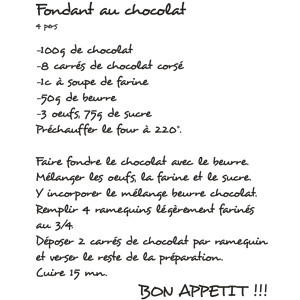 Fondant au chocolat
4 pers
-100g de chocolat
-8 carrés de chocolat corsé
-1c à soupe de farine
-50g de beurre
-3 oeufs, 75g de sucre
Préchauffer le four à 220°.
Faire fondre le chocolat avec le beurre.
Mélanger les oeufs, la farine et le sucre.
Y incorporer le mélange beurre chocolat.
Remplir 4 ramequins légèrement farinés
au 3/4.
Déposer 2 carrés de chocolat par ramequin
et verser le reste de la préparation.
Cuire 15 mn.
BON APPETIT !!!